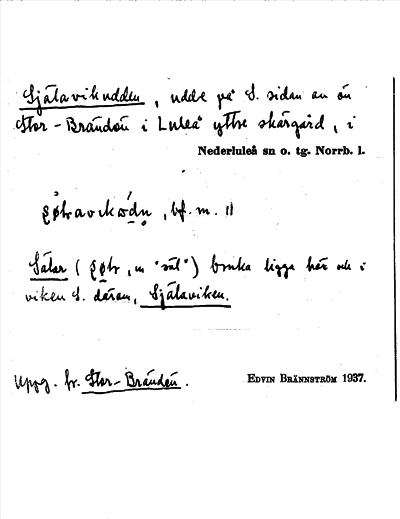 Själavikudden, udde på S. sidan av ön
Stor-Brändön i Luleå yttre skärgård, i
Nederluleå sn o. tg. Norrb. l.
, bf. m. 11
Sälar ( , m "säl") bruka ligga här och i
viken S. därom, Själaviken.
Uppg. fr. Stor-Brändön.
EDVIN BRÄNNSTRÖM 1937.